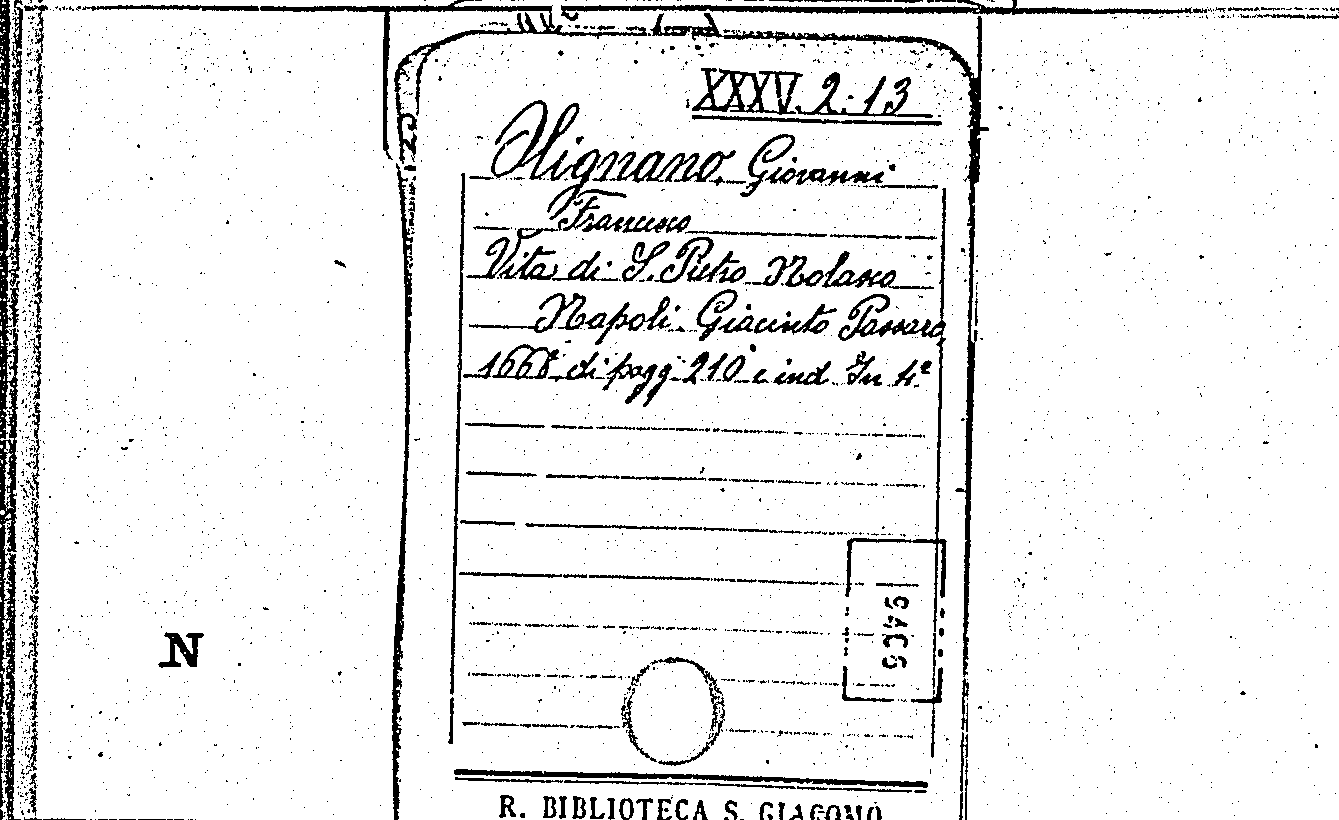 XXXV. 2. 13
Olignano, Giovanni
Francesco
Vita di S. Pietro Nolasco
Napoli. Giacinto Passaro
1668 di pagg. 210 e ind. In 4º
N
R. BIBLIOTECA S. GIACOMO